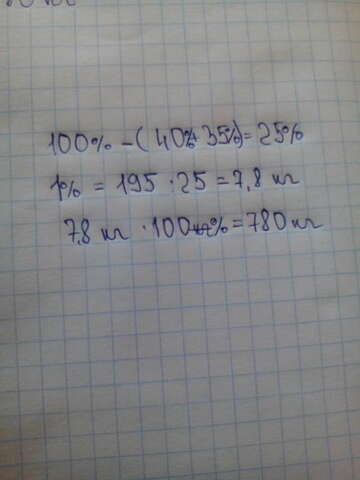 100% - (40%+35%)=25%
1% = 195 · 25 = 7,8 кг
7,8 кг · 100% = 780 кг